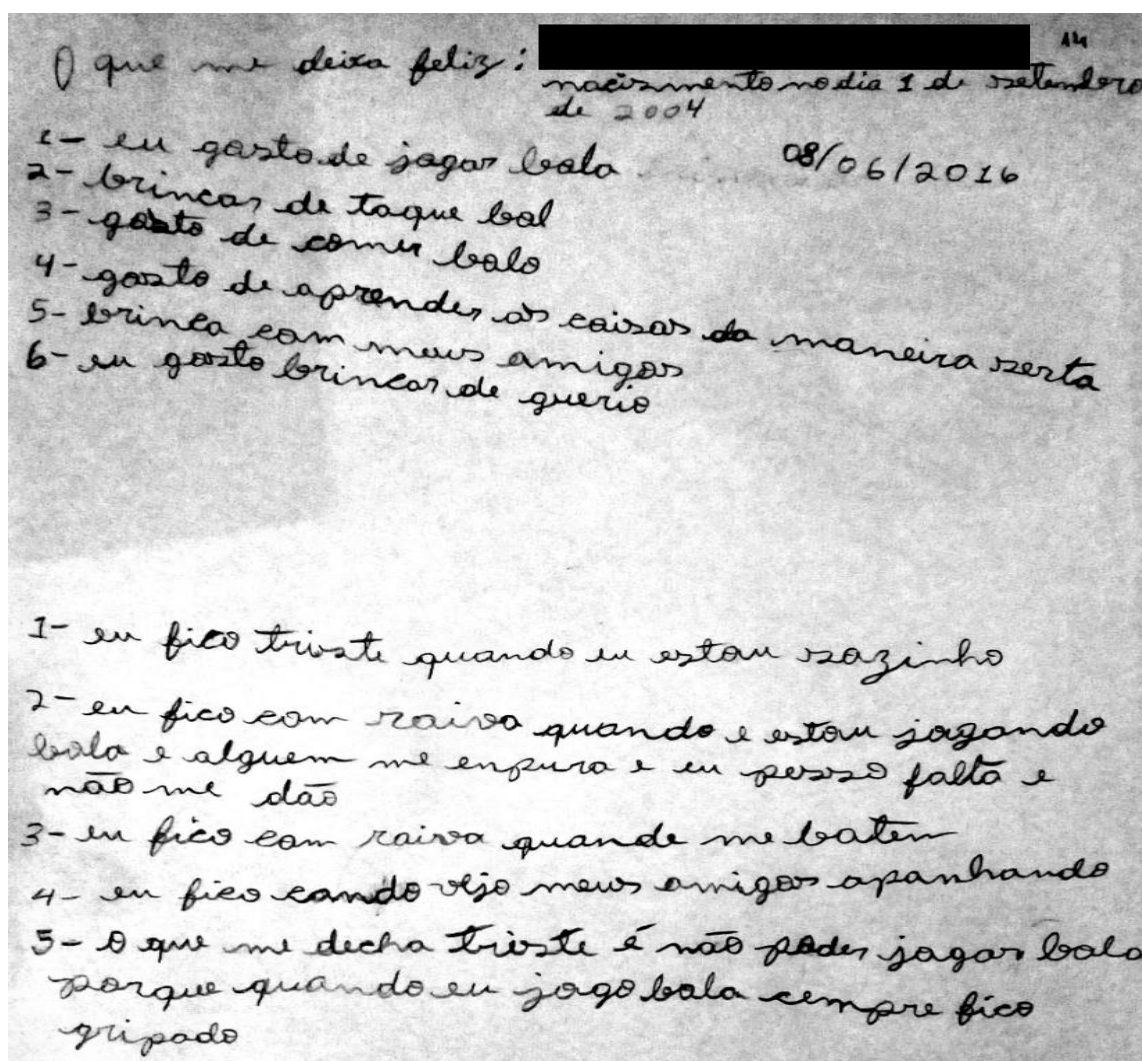 O que me deixa feliz: 14
nacismento no dia 1 de setembro
de 2004
1- eu gosto de jogar bola 08/06/2016
2- brincar de taque bol
3- gosto de comer bolo
4- gosto de aprender as coisas da maneira serta
5- brinca com meus amigos
6- eu gosto brincar de querio
1- eu fico triste quando eu estou sozinho
2- eu fico com raiva quando e estou jogando
bola e alguem me enpura e eu pesso falta e
não me dão
3- eu fico com raiva quande me batem
4- eu fico cando vejo meus amigos apanhando
5- O que me decha triste é não poder jogar bola
porque quando eu jogo bola cempre fico
gripado